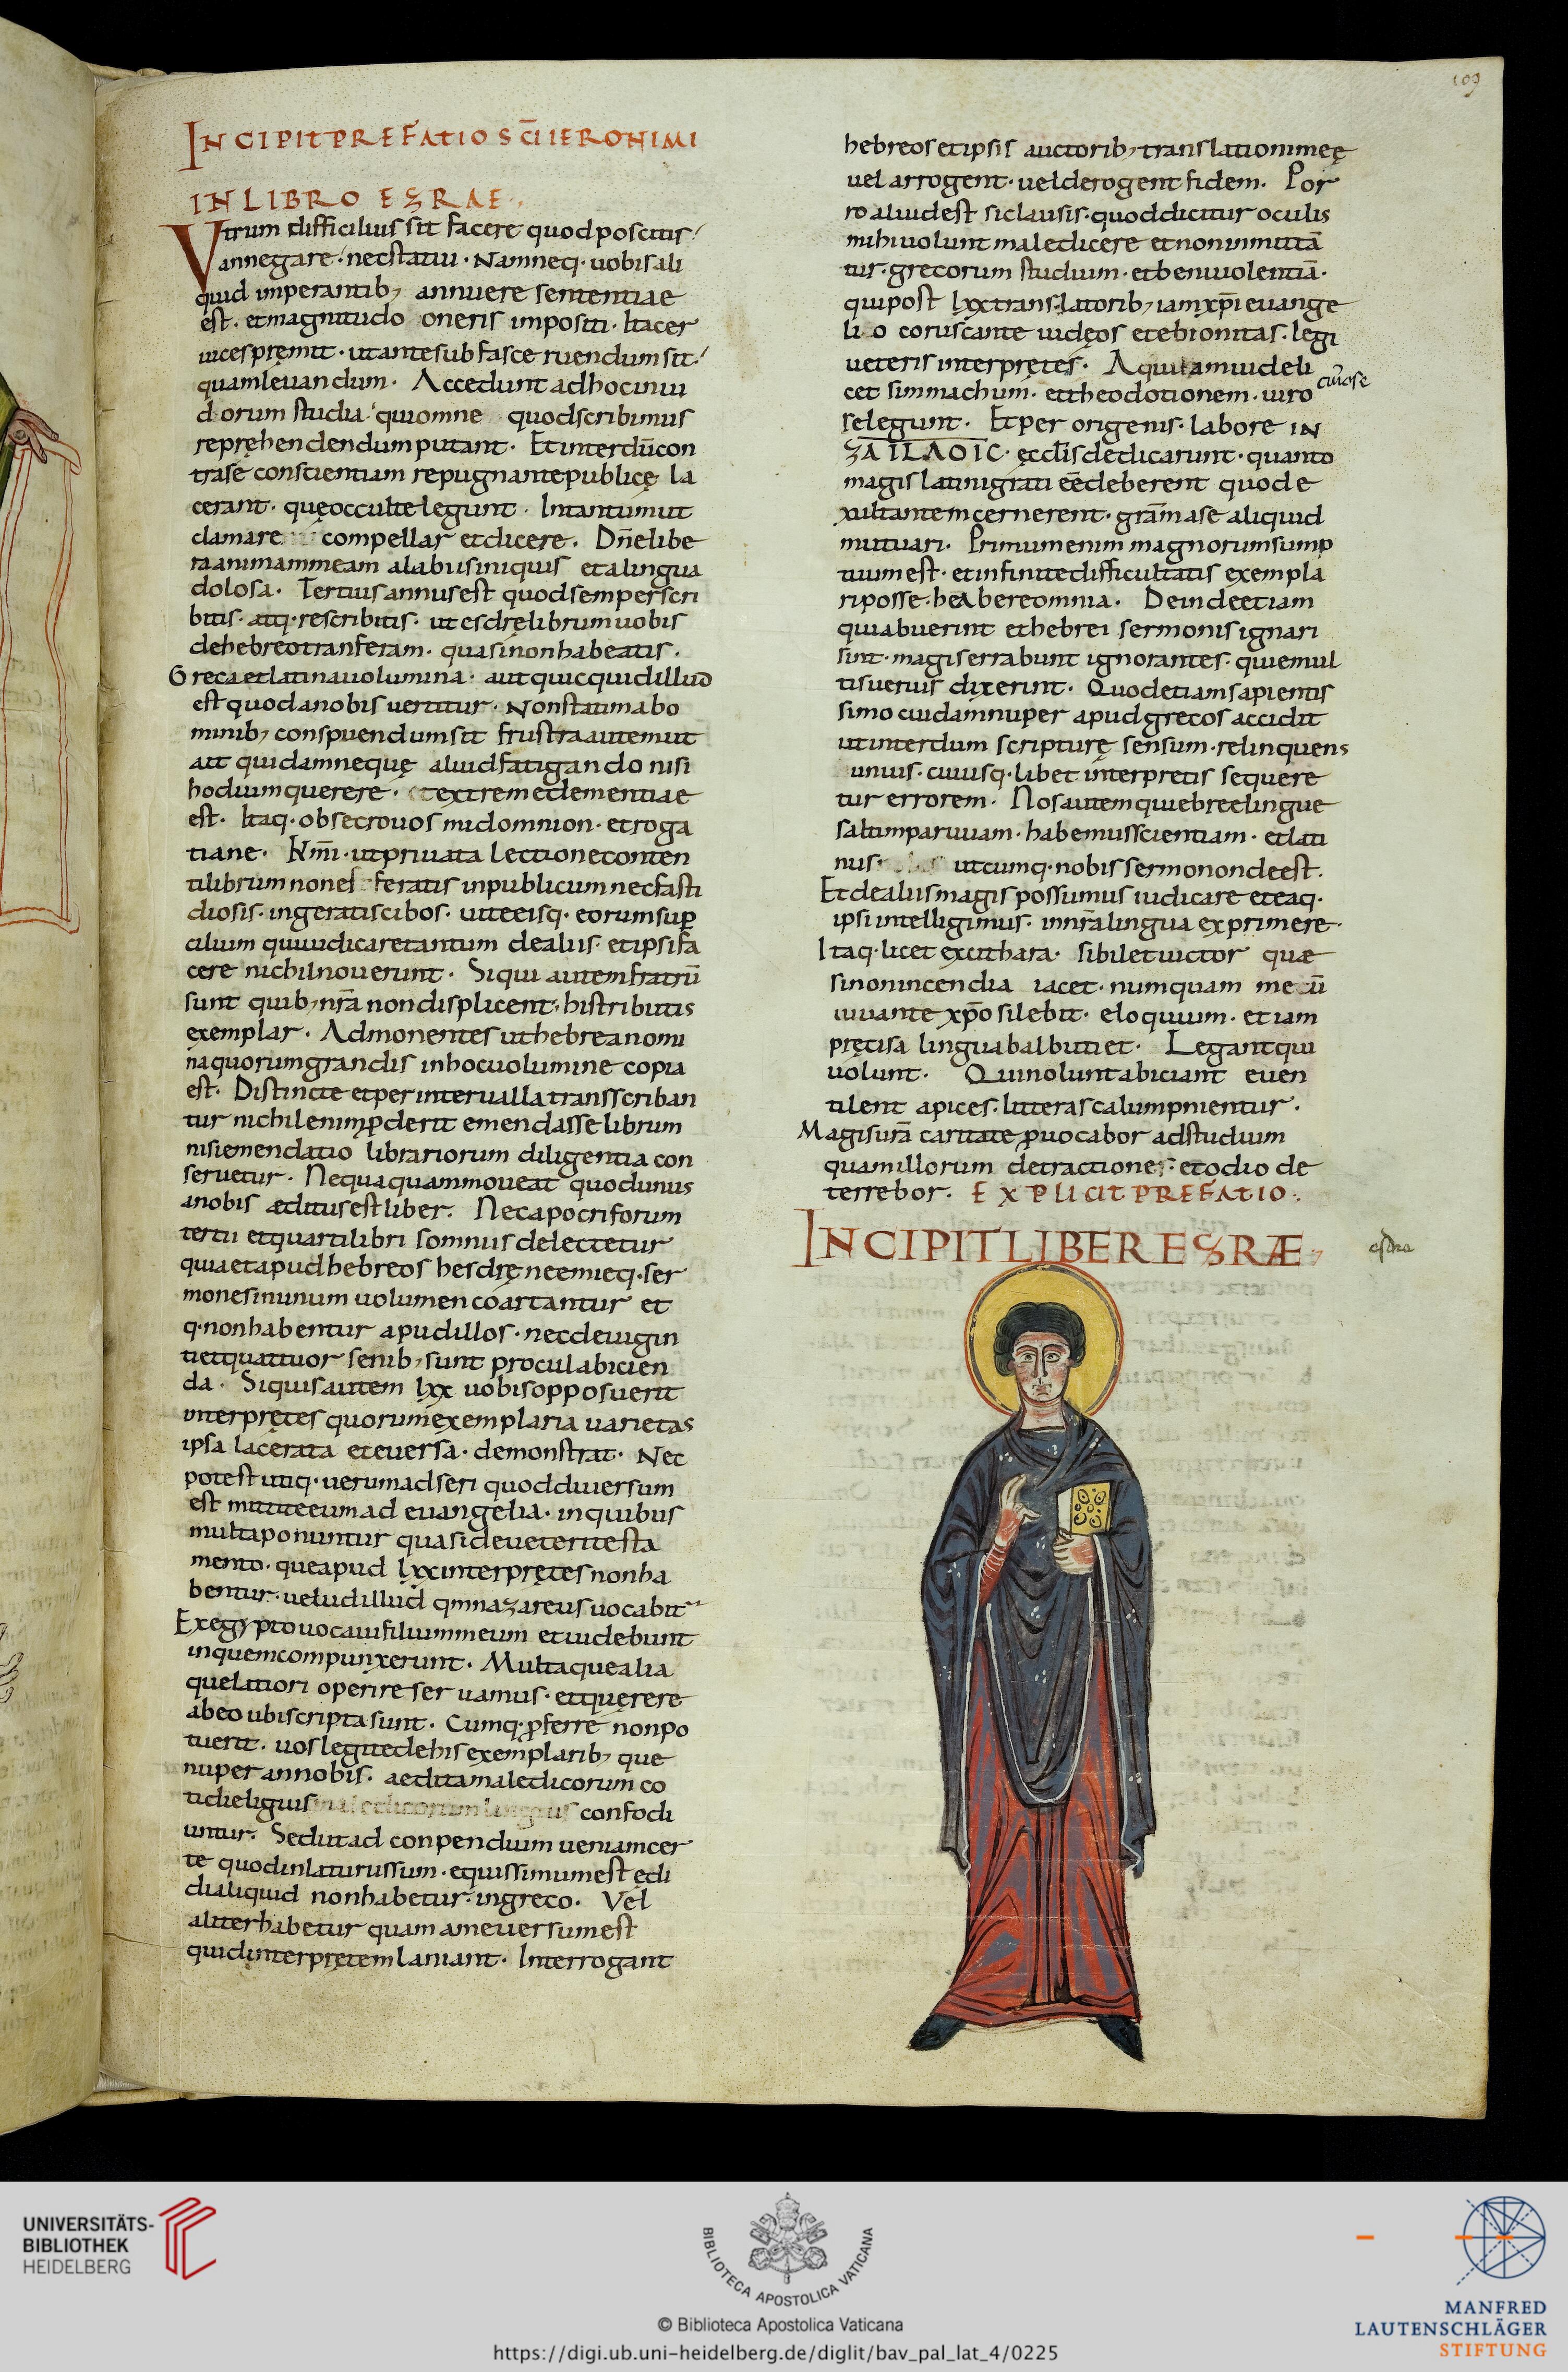 109
INCIPIT PREFATIO SC̄I IERONIMI
IN LIBRO ESRAE·,
Vtrum difficilius sit facere quod poscitis
an negare· nec statui· Nam neq· uobis ali
quid imperantib; annuere sententiae
est· et magnitudo oneris impositi· ita cer
uices pręmit· ut ante sub fasce ruendum sit
quam leuandum· Accedunt ad hoc inui
dorum studia· qui omne quod scribimus
repręhendendum putant· Et interdū con
tra se conscientiam repugnante publicę la
cerant· quę occulte legunt· Intantum ut
clamare compellar et dicere· Dn̄e libe
ra animam meam a labiis iniquis et a lingua
dolosa· Tertius annus est quod semper scri
bitis· atq· rescribitis· ut esdrę librum uobis
de hebreo tranferam· quasi non habeatis·
Greca et latina uolumina· aut quicquid illud
est quod a nobis uertitur· Non statim abo
minib; conspuendum sit frustra autem ut
ait quidam nequę aliud fatigando nisi
hodium querere· extreme dementiae
est· Itaq· obsecro uos mi domnion· et roga
tiane· Kmī· ut priuata lectione conten
ti librum non efferatis in publicum nec fasti
diosis· ingeratis cibos· uiteeisq· eorum sup̄
cilium qui iudicare tantum de aliis· et ipsi fa
cere nichil nouerunt· Siqui autem fratrū
sunt quib; nr̄a non displicent· his tributis
exemplar· Admonentes ut hebrea nomi
na quorum grandis in hoc uolumine copia
est· Distincte et per interualla transscriban
tur nichil enim p̱derit emendasse librum
nisi emendatio librariorum diligentia con
seruetur· Nequaquam moueat quod unus
a nobis æditus est liber· Nec apocriforum
tertii et quarti libri somnus delectetur
quia et apud hebreos hesdrę neemieq· ser
mones in unum uolumen coartantur et
q· non habentur apud illos· nec de uigin
ti et quattuor senib; sunt procul abicien
da· Siquis autem lxx uobis opposuerit
interprętes quorum exemplaria uarietas
ipsa lacerata et euersa· demonstrat· Nec
potest utiq· uerum adseri quod diuersum
est mittite eum ad euangelia· in quibus
multa ponuntur quasi de ueteri testa
mento· que apud lxx interpretes non ha
bentur· uelud illud qm̄ nazareus uocabit
Ex egypto uocaui filium meum et uidebunt
in quem compunxerunt· Multaque alia
que latiori operire seruamus· et querere
ab eo ubi scripta sunt· Cumq· p̱ferre non po
tuerit· uos legite de his exemplarib; que
nuper an nobis· aedita maledicorum co
tidie liguis maledicorum linguis confodi
untur· Sed ut ad conpendium ueniam cer
te quod inlaturus sum· equissimum est ędi
di aliquid non habetur· in greco· Vel
aliter habetur quam a me uersum est
quid interpretem laniant· Interrogant
hebreos et ipsis auctorib; translationi meę
uel arrogent· uel derogent fidem· Por
ro aliud est si clausis· quod dicitur oculis
mihi uolunt maledicere et non inmittā
tur· grecorum studium· et beniuolentiā·
qui post lxx translatorib; iam xp̄i euange
lio coruscante iudęos et ebionitas· legi
ueteris interpretes· Aquilam uideli
cet simmachum· et theodotionem· uiro
curiose
se legunt· Et per origenis· labore IN
ƷAILAOIC· ęccl̄is dedicarunt· quanto
magis latini grati eē deberent quod e
xultantem cernerent· grām a se aliquid
mutuari· Primum enim magnorum sump
tuum est· et infinite difficultatis exempla
ri posse· habere omnia· Deinde etiam
qui abuerint et hebrei sermonis ignari
sint· magis errabunt ignorantes· qui e mul
tis uerius dixerint· Quod etiam sapientis
simo cuidam nuper apud grecos accidit
ut interdum scripturę sensum· relinquens
unius· cuiusq· libet interpretis sequere
tur errorem· Nos autem qui ebree lingue
saltim paruuam· habemus scientiam· et lati
nus· utcumq· nobis sermo non deest·
Et de aliis magis possumus iudicare et eaq·
ipsi intelligimus· in nr̄a lingua exprimere·
Itaq· licet excithara· sibilet uictor quæ
sinon incendia iacet· numquam mecū
iuuante xp̄o silebit· eloquium· etiam
pręcisa lingua balbutiet· Legant qui
uolunt· Qui nolunt abiciant euen
tilent apices· litteras calumpnientur·
Magis urā caritate p̱uocabor ad studium
quam illorum detractione· et odio de
terrebor· EXPLICIT PREFATIO·,
INCIPIT LIBER ESRÆ·,
esdra
UNIVERSITÄTS-
BIBLIOTHEK
HEIDELBERG
BIBLIOTECA APOSTOLICA VATICANA
© Biblioteca Apostolica Vaticana
https://digi.ub.uni-heidelberg.de/diglit/bav_pal_lat_4/0225
MANFRED
LAUTENSCHLÄGER
STIFTUNG